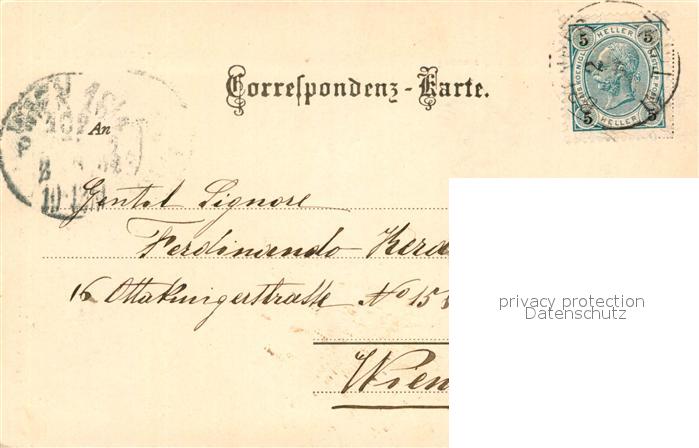 Correspondenz-Karte.
5 HELLER 5
5 HELLER 5
WIEN
An
Gentil Signore
Ferdinando
16 Ottakringerstrasse No 15
Wien
privacy protection
Datenschutz